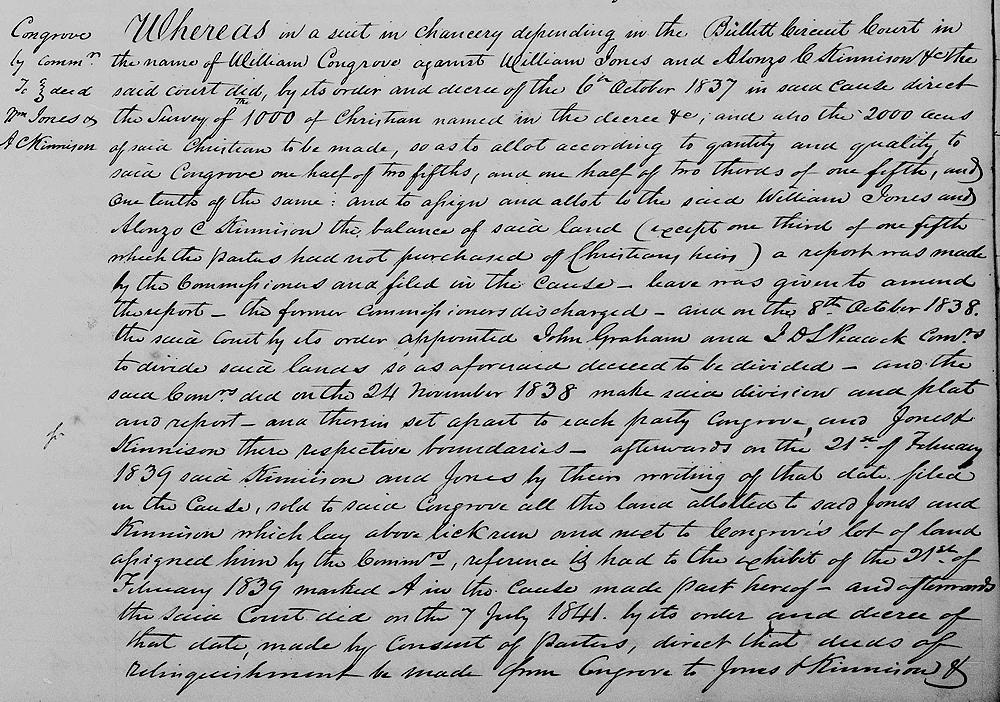 Congrove
by Comm.rs
To } deed
Wm Jones &
A C Kinnison
Whereas in a suit in chancery depending in the Bullitt Circuit Court in
the name of William Congrove against William Jones and Alonzo C Kinnison &c the
said court did, by its order and decree of the 6th October 1837 in said cause direct
the Survey of the 1000 of Christian named in the decree &c; and also the 2000 acres
of said Christian to be made, so as to allot according to qantity and quality, to
said Congrove one half of two fifths, and one half of two thirds of one fifth, and
one tenth of the same: and to assign and allot to the said William Jones and
Alonzo C Kinnison the balance of said land (except one third of one fifth
which the parties had not purchased of Christians heirs) a report was made
by the Commissioners and filed in the cause – leave was given to amend
the report – the former commissioners discharged – and on the 8th October 1838.
the said court by its order appointed John Graham and J D S Peacock Comrs
to divide said lands so as aforesaid decreed to be divided – and the
said Comrs did on the 24 November 1838 make said division and plat
and report – and therein set apart to each party Congrove, and Jones &
Kinnison there respective boundaries – afterwards on the 21st of February
1839 said Kinnison and Jones by their writing of that date filed
in the cause, sold to said Congrove all the land allotted to said Jones and
Kinnison which lay above lick run and next to Congrove's lot of land
assigned him by the Commrs, reference is had to the exhibit of the 21st of
February 1839 marked A in the cause made part hereof – and afterwards
the said Court did on the 7 July 1841. by its order and decree of
that date, made by consent of parties, direct that deeds of
relinquishment be made from Congrove to Jones & Kinnison &